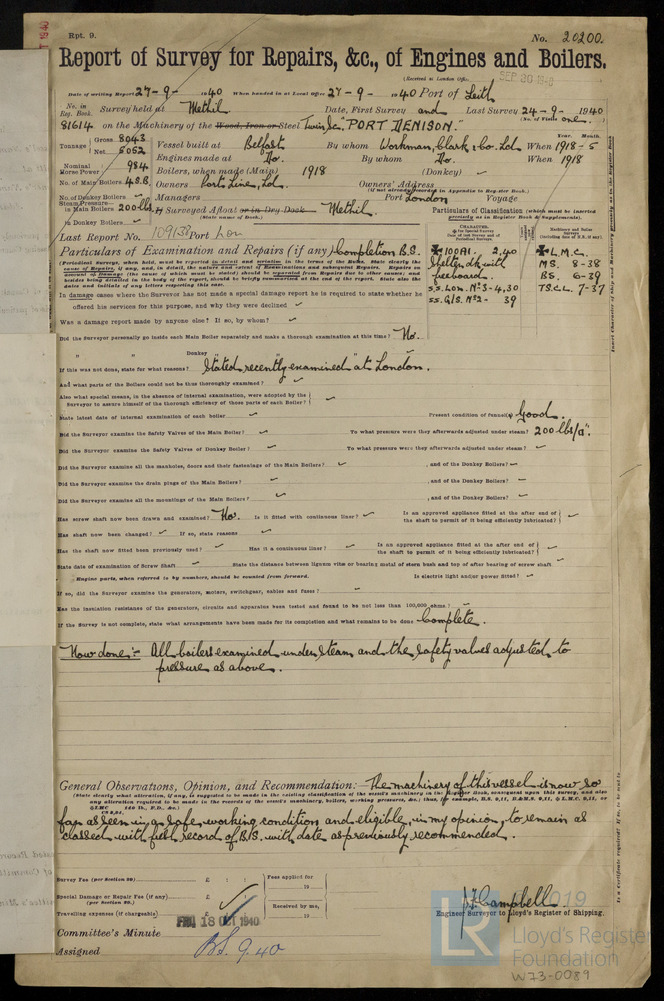 Rpt. 9.
No. 20200.
Report of Survey for Repairs, &c., of Engines and Boilers.
(Received at London Office
SEP 30 1940
Date of writing Report 27-9-1940 When handed in at Local Office 27-9-1940 Port of Leith
No. in Reg. Book. Survey held at Methil Date, First Survey and Last Survey 24-9-1940
(No. of Visits one.)
81614 on the Machinery of the Wood, Iron or Steel Twin Sc. "PORT DENISON."
Tonnage Gross 8043 Net 5052
Vessel built at Belfast By whom Workman, Clark & Co. Ld. When Year. Month. 1918-5
Engines made at Do. By whom Do. When 1918
Nominal Horse Power 984 Boilers, when made (Main) 1918 (Donkey)
No. of Main Boilers 4 S.B. Owners Port Line, Ld. Owners' Address
(if not already recorded in Appendix to Register Book.)
No. of Donkey Boilers Managers Port London Voyage
Steam Pressure in Main Boilers 200 lbs. If Surveyed Afloat or in Dry Dock Methil.
(State name of Dock.)
in Donkey Boilers
Particulars of Classification (which must be inserted precisely as in Register Book & Supplements).
Last Report No. 109138 Port Lon
Particulars of Examination and Repairs (if any) Completion B.S.
✠100A1. 2,40 ✠L.M.C.
Shelter dk with M.S. 8-38
freeboard. B.S. 6-39
s.s. Lon. No 3-4,30 T.S.C.L. 7-37
ss. Gls. No 2- 39
In damage cases where the Surveyor has not made a special damage report he is required to state whether he
offered his services for this purpose, and why they were declined
Was a damage report made by anyone else? If so, by whom?
Did the Surveyor personally go inside each Main Boiler separately and make a thorough examination at this time? No.
" " Donkey " "
If this was not done, state for what reasons? Stated recently examined at London.
And what parts of the Boilers could not be thus thoroughly examined?
Also what special means, in the absence of internal examination, were adopted by the
Surveyor to assure himself of the thorough efficiency of those parts of each Boiler?
State latest date of internal examination of each boiler Present condition of funnel(s) Good.
Did the Surveyor examine the Safety Valves of the Main Boiler? To what pressure were they afterwards adjusted under steam? 200 lbs/□".
Did the Surveyor examine the Safety Valves of Donkey Boiler? To what pressure were they afterwards adjusted under steam?
Did the Surveyor examine all the manholes, doors and their fastenings of the Main Boilers? , and of the Donkey Boilers?
Did the Surveyor examine the drain plugs of the Main Boilers? , and of the Donkey Boilers?
Did the Surveyor examine all the mountings of the Main Boilers? , and of the Donkey Boilers?
Has screw shaft now been drawn and examined? No. Is it fitted with continuous liner? Is an approved appliance fitted at the after end of
the shaft to permit of it being efficiently lubricated?
Has shaft now been changed? If so, state reasons
Has the shaft now fitted been previously used? Has it a continuous liner? Is an approved appliance fitted at the after end of
the shaft to permit of it being efficiently lubricated?
State date of examination of Screw Shaft State the distance between lignum vitæ or bearing metal of stern bush and top of after bearing of screw shaft
Engine parts, when referred to by numbers, should be counted from forward. Is electric light and/or power fitted?
If so, did the Surveyor examine the generators, motors, switchgear, cables and fuses?
Has the insulation resistance of the generators, circuits and apparatus been tested and found to be not less than 100,000 ohms?
If the Survey is not complete, state what arrangements have been made for its completion and what remains to be done Complete.
Now done:- All boilers examined under steam and the safety valves adjusted to
pressure as above.
General Observations, Opinion, and Recommendation:- The machinery of this vessel is now so
far as seen in a safe working condition and eligible, in my opinion, to remain as
classed with fresh record of B.S. with date as previously recommended.
Survey Fee (per Section 29) £ : : Fees applied for
Special Damage or Repair Fee (if any) £
(per Section 29.) Received by me,
Travelling expenses (if chargeable) £
Engineer Surveyor to Lloyd's Register of Shipping.
Committee's Minute FRI. 18 OCT 1940
Assigned BS. 9.40
J. Campbell
LR
Lloyd's Register
Foundation
W73-0089